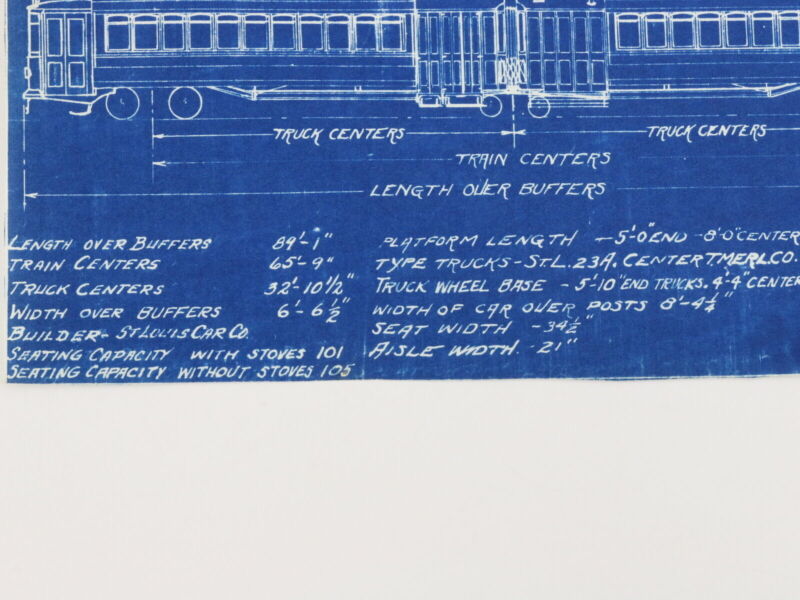 TRUCK CENTERS TRUCK CENTERS
TRAIN CENTERS
LENGTH OVER BUFFERS
LENGTH OVER BUFFERS 89'-1"
TRAIN CENTERS 65'-9"
TRUCK CENTERS 32'-10½"
WIDTH OVER BUFFERS 6'-6½"
BUILDER- ST LOUIS CAR CO.
SEATING CAPACITY WITH STOVES 101
SEATING CAPACITY WITHOUT STOVES 105
PLATFORM LENGTH -5'-0"END -8'-0"CENTER
TYPE TRUCKS-ST.L. 23A. CENTER T.M.E.R.L.CO.
TRUCK WHEEL BASE - 5'-10"END TRUCKS. 4'-4"CENTER
WIDTH OF CAR OVER POSTS 8'-4¼"
SEAT WIDTH -34½"
AISLE WIDTH. -21"